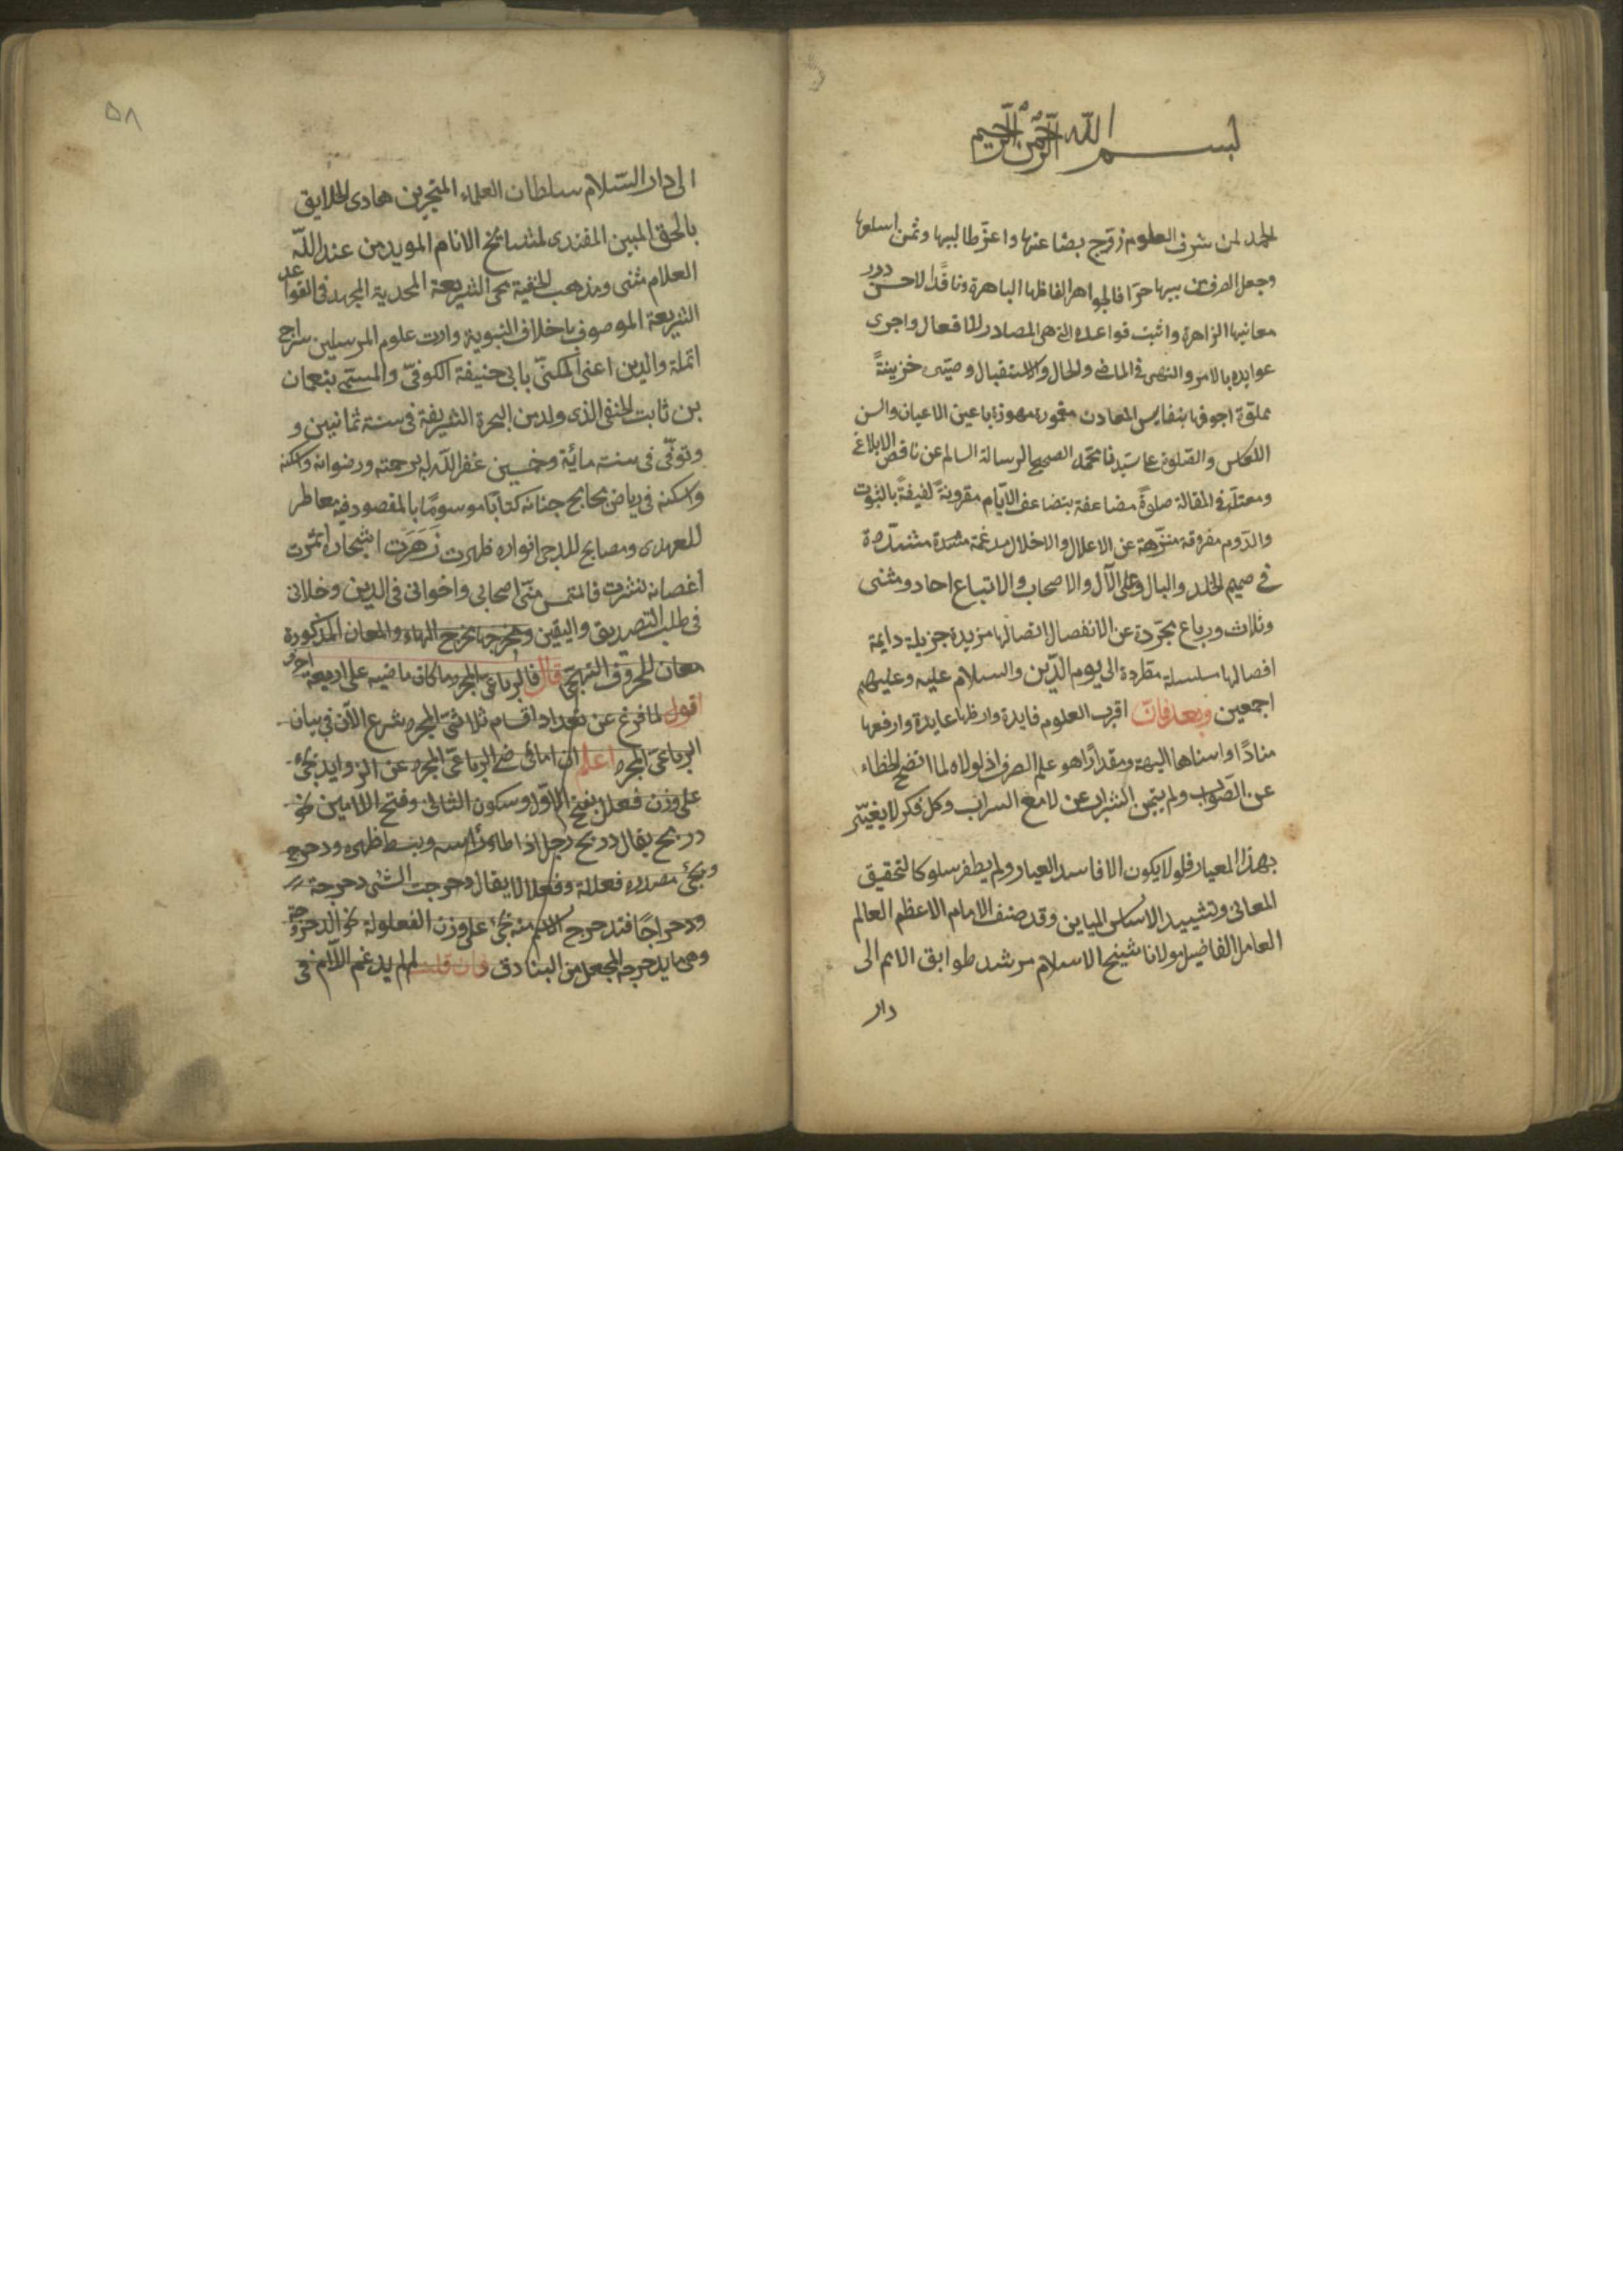 بسم الله الرحمن الرحيم
الحمد لمن شرف العلوم زوّج بضاعتها واعزّ طالبيها وثمن اسلعها
وجعل الصرف من بينها حرّا فالجواهر الفاظها الباهرة وناقدًا لاحسن درر
معانيها الزاهرة واثبت قواعده التي هي المصادر للافعال واجرى
عوايده بالامر والنهى فى الماضى والحال والاستقبال وصيّر خزينةً
مملوّة اجوفها بنفايس المعادن مغمورة مهموزة باعين الاعيان والسن
والصلوة على سيّدنا محمّد الصحيح الرسالة السالم عن ناقص الابلاغ
ومعتلّ فى المقالة صلوةً مضاعفة بتضاعف الايّام مقرونةً لفيفةً بالثبوت
والدّوم مفروقة منزّهة عن الاعلال والاخلال مدغمة مشدّدة
فى صميم الخلد والبال وعلى الآل والاصحاب والاتباع احاد ومثنى
وثلاث ورباع مجرّدة عن الانفصال اتصالها مزيدة جزيلة دايمة
افصالها سلسلة مطّردة الى يوم الدّين والسلام عليه وعليهم
اجمعين وبعد فانّ اقرب العلوم فايدة عايدة وارفعها
منارًا واسناها اليهة ومقدارًا هو علم الصرف اذ لولاه لما اتضح الخطاء
عن الصّواب ولم يتميّز الشراب عن لامع السراب وكل فكر لا يغيّر
بهذا المعيار فلو لا يكون الا فاسد العيار ولم يظفر سلوكا لتحقيق
المعانى وتشييد الاساس المباين وقد صنف الامام الاعظم العالم
العامل الفاضل مولانا شيخ الاسلام مرشد طوابق الامم الى
دار
٥٨
الى دار السّلام سلطان العلماء المتبحرين هادى الخلايق
بالحق المبين المقتدى لمشايخ الانام المويد من عند الله
العلام مثنى ومذهب الحنفية محى الشريعة المحمدية المجهد فى القواعد
الشريعة الموصوف باخلاق النبوية وارث علوم المرسلين سراج
الملة والدين اعنى المكنىّ بابى حنيفة الكوفىّ والمسمّى بنعمان
بن ثابت الحنفى الذى ولد من الهجرة الشريفة فى سنة ثمانين و
وتوفّى فى سنت مائة وخمسين غفر الله له برحمته ورضوانه واسكنه
واسكنه فى رياض جنانه كتابًا موسومًا بالمقصود فيه معاطر
للهدى ومصابح للدجى انواره ظهرت زَهَرَت اشجاره اثمرت
اغصانه نشرت فالتمس منّى اصحابى واخوانى فى الدين وخلانى
فى طلب التصديق واليقين ومخرجها مخرج الهاء والمعان المذكورة
معان للحروف التهجّى قال فالرباعى المجرد ما كان ماضيه على اربعة احرف
اقول لما فرغ عن تعداد اقسام ثلاثىّ المجرد شرع الآن فى بيان
الرباعىّ المجرد اعلم ان الماضى الرباعىّ المجرد عن الزوايد يجئ
على وزن فعلل بفتح الاوّل وسكون الثانى وفتح اللامين نحو
دربح يقال دربح رجل اذا طاء رأسه وبسط ظهره ودحرج
ويجئ مصدره فعللة وفعلالا يقال دحرجت الشئ دحرجة
ودحراجًا فتدحرج الاسم منه يجئ على وزن الفعلولة نحو الدحروجة
وهى ما يدحرجه الجعل من البنادق فان قلت لم لم يدغم اللّام فى